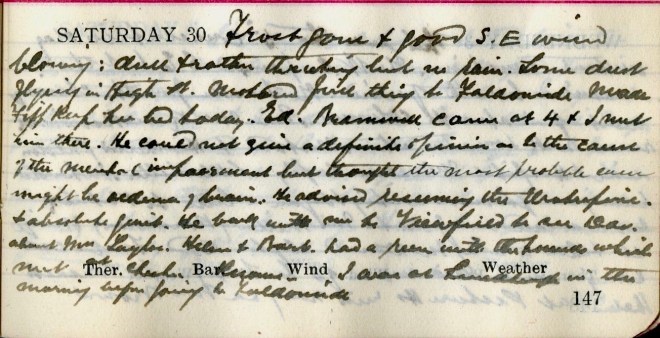 SATURDAY 30 Frost gone & good S. E wind
blowing: dull & rather threatening but no rain. Some dust
flying in High St. Motored first thing to Faldonside made
Tiff keep her bed today. Ed. Bramwell came at 4 & I met
him there. He could not give a definite opinion as to the cause
of the mental impairment but thought the most probable cause
might be oedema of brain. He advised resuming the Urotropine.
& absolute quiet. He back with me to Viewfield to see Dav.
about Mrs Taylor. Helen & Bart. had a run with the hounds which
met at I was at in the
Ther. Bar. Wind Weather
morning before going to Faldonside
147